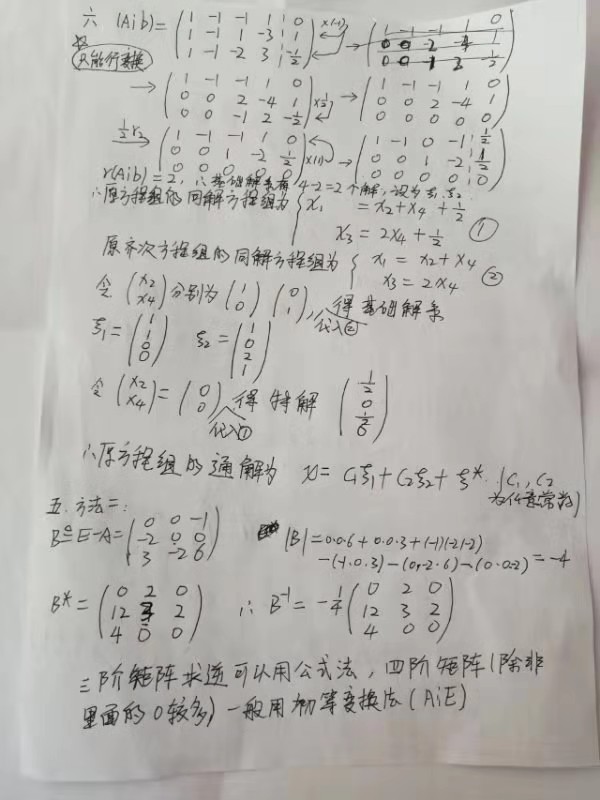 六 (A¦b)= (1 -1 -1 1 ¦ 0; 1 -1 1 -3 ¦ 1; 1 -1 -2 3 ¦ -1/2) ×(-1) →
只能行变换
→ (1 -1 -1 1 0; 0 0 2 -4 1; 0 0 -1 2 -1/2) ×1/2 → (1 -1 -1 1 0; 0 0 2 -4 1; 0 0 0 0 0)
1/2 r₂ → (1 -1 -1 1 0; 0 0 1 -2 1/2; 0 0 0 0 0) ×(1) → (1 -1 0 -1 ¦ 1/2; 0 0 1 -2 ¦ 1/2; 0 0 0 0 ¦ 0)
r(A¦b)=2, ∴基础解系有 4-2=2个解,设为ξ₁,ξ₂
∴原方程组的同解方程组为 { x₁ = x₂+x₄+1/2
x₃ = 2x₄+1/2 ①
原齐次方程组的同解方程组为 { x₁ = x₂+x₄
x₃ = 2x₄ ②
令 (x₂; x₄) 分别为 (1; 0) (0; 1), 得基础解系
代入②
ξ₁= (1; 1; 0; 0) ξ₂= (1; 0; 2; 1)
令 (x₂; x₄) = (0; 0) 得特解 (1/2; 0; 1/2; 0)
代入①
∴原方程组的通解为 x= C₁ξ₁+C₂ξ₂+ξ*. (C₁, C₂
为任意常数)
五.方法二:
B≜E-A= (0 0 -1; -2 0 0; 3 -2 6) |B|=0·0·6+0·0·3+(-1)(-2)(-2)
-(-1·0·3)-(0·-2·6)-(0·0·-2)=-4
B*= (0 2 0; 12 3 2; 4 0 0) ∴ B⁻¹= -1/4 (0 2 0; 12 3 2; 4 0 0)
三阶矩阵求逆可以用公式法,四阶矩阵(除非
里面的0较多)一般用初等变换法(A¦E)